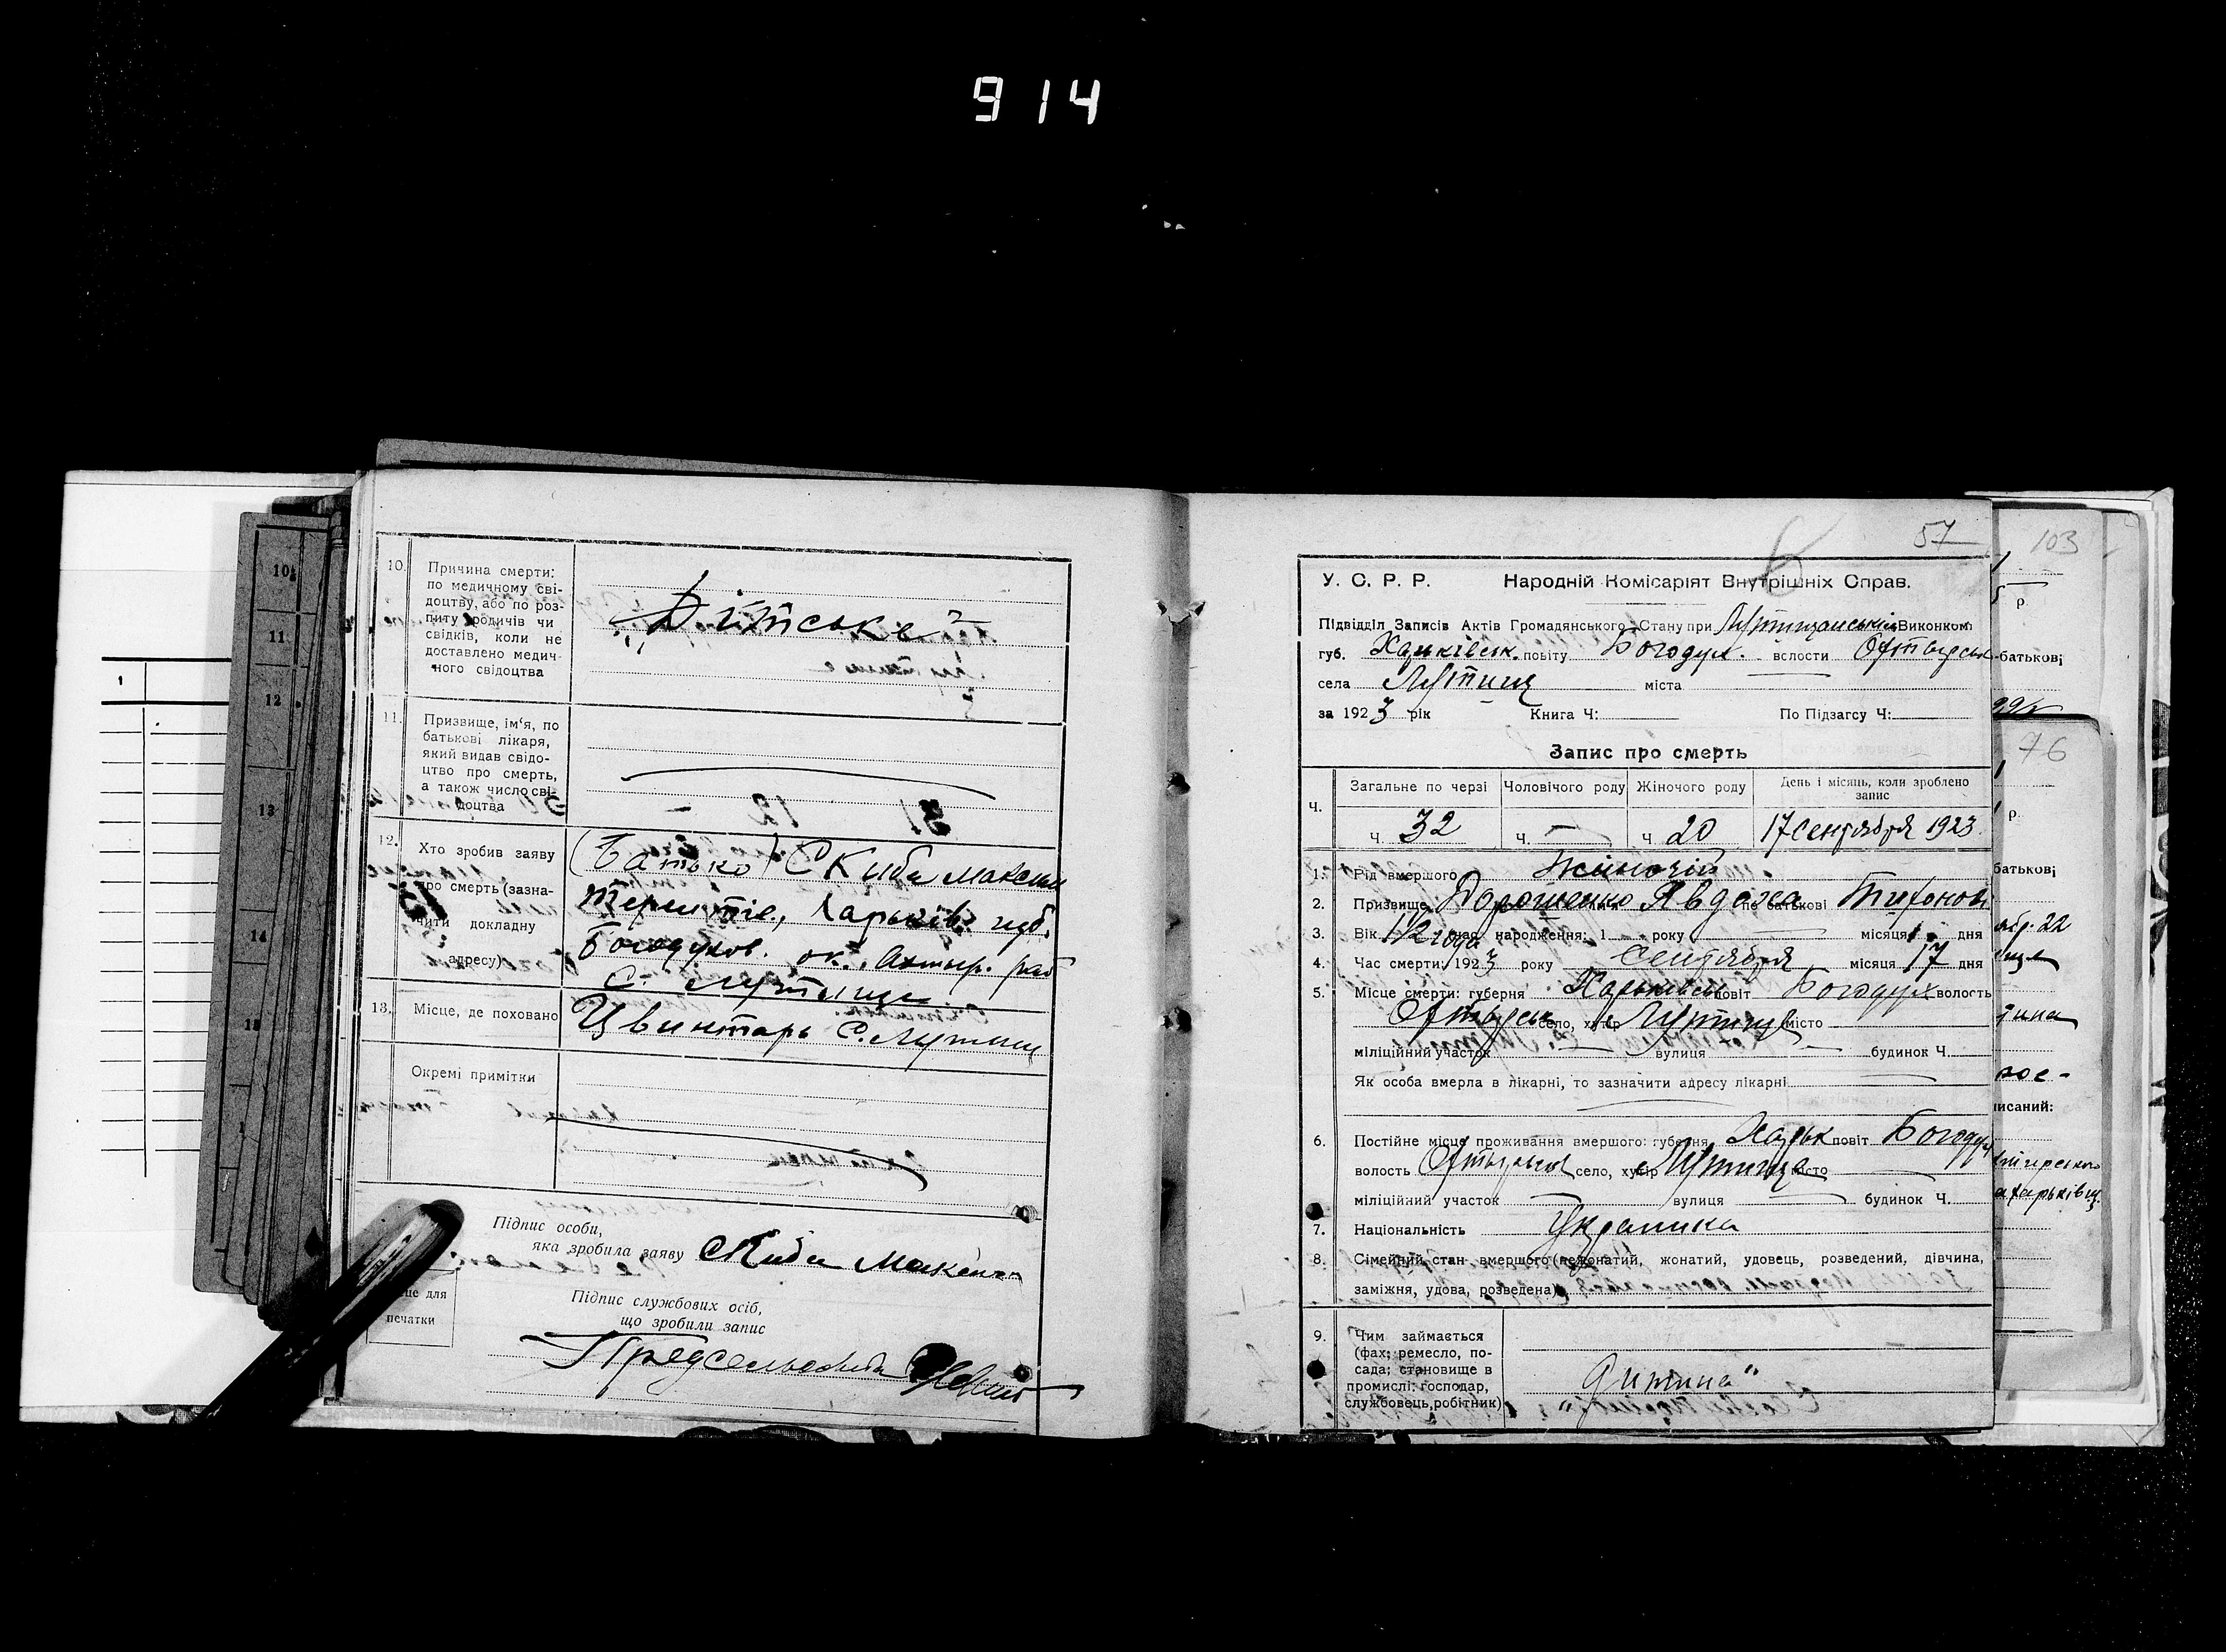 914
10
11
12
13
14
1
1
10.
Причина смерти:
по медичному сві-
доцтву, або по роз-
питу родичів чи
свідків, коли не
доставлено медич-
ного свідоцтва
„Дітське"
11.
Призвище, ім'я, по
батькові лікаря,
який видав свідо-
цтво про смерть,
а також число сві-
доцтва
12.
Хто зробив заяву
про смерть (зазна-
чити докладну
адресу)
(Батько) Скиба Максим
Терентіє., Харьків. губ.
Богодухов. ок., Ахтыр. рай
с. Лутище
13.
Місце, де поховано
Цвинтарь с. Лутищ
Окремі примітки
Підпис особи,
яка зробила заяву Скиба Максим
Підпис службових осіб,
що зробили запис
для
печатки
Предсельсовета
6
57
У. С. Р. Р. Народній Комісаріят Внутрішніх Справ.
Підвідділ Записів Актів Громадянського Стану при Лутищанськім Виконком
губ. Харківськ. повіту Богодух. волости
села Лутищ міста
за 1923 рік Книга Ч: По Підзагсу Ч:
Запис про смерть
Ч.
Загальне по черзі Чоловічого роду Жіночого роду День і місяць, коли зроблено
запис
Ч. 32 Ч. — Ч. 20 17 Сентября 1923.
1. Рід вмершого Жіночій
2. Призвище Дорошенко Явдоха по батькові Тихонові
3. Вік 1 1/2 года народження: 1 року місяця дня
4. Час смерти: 1923 року Сентября місяця 17 дня
5. Місце смерти: губерня Харьківськ повіт Богодух волость
село, хутір Лутищ місто
міліційний участок вулиця будинок Ч.
Як особа вмерла в лікарні, то зазначити адресу лікарні
6. Постійне місце проживання вмершого: губерня Харьк повіт Богодух
волость село, хутір Лутище місто
міліційний участок вулиця будинок Ч.
7. Національність Украинка
8. Сімейний стан вмершого (нежонатий, жонатий, удовець, розведений, дівчина,
заміжня, удова, розведена)
9. Чим займається
(фах; ремесло, по-
сада; становище в
промислі: господар,
службовець, робітник)
„Дитина"
103
р.
батькові
76
р.
батькові